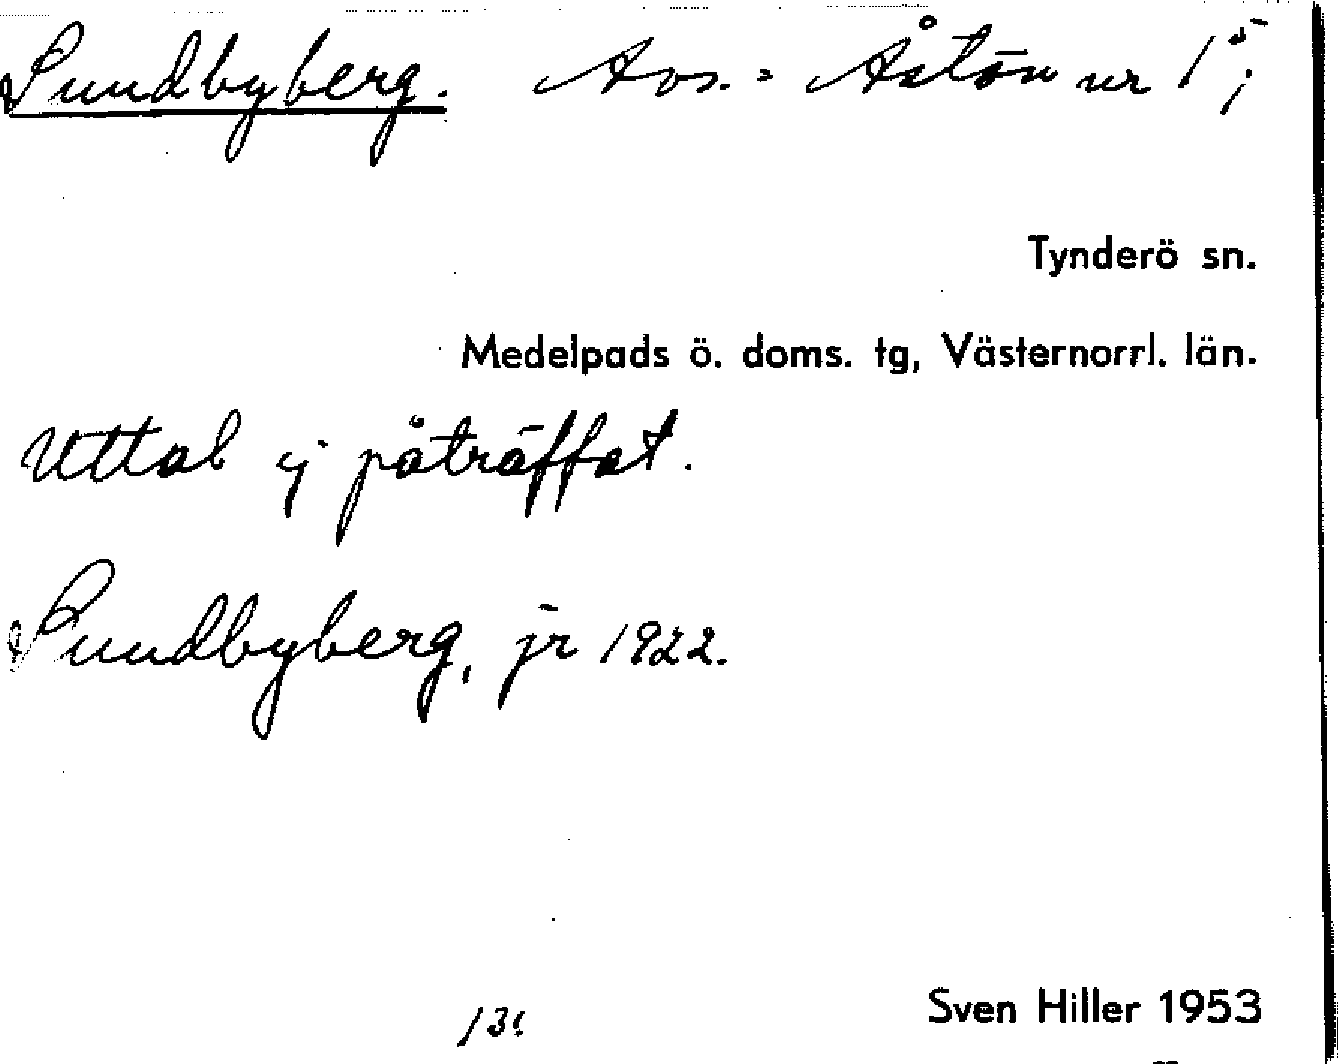 Sundbyberg. Avs. = Åstön nr 1⁵;
Tynderö sn.
Medelpads ö. doms. tg, Västernorrl. län.
Uttal ej påträffat.
Sundbyberg, jr 1922.
Sven Hiller 1953